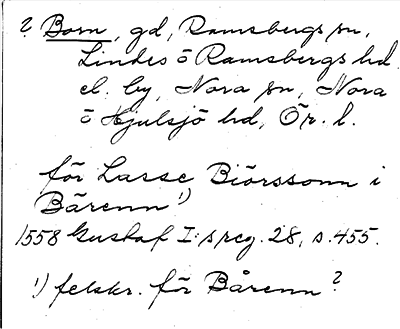 ? Born, gd, Ramsbergs sn,
Lindes o Ramsbergs hd
el. by, Nora sn, Nora
o Hjulsjö hd, Ör. l.
för Lasse Biörssonn i
Bärenn 1)
1558 Gustaf I:s reg. 28, s. 455.
1) felskr. för Bårenn?